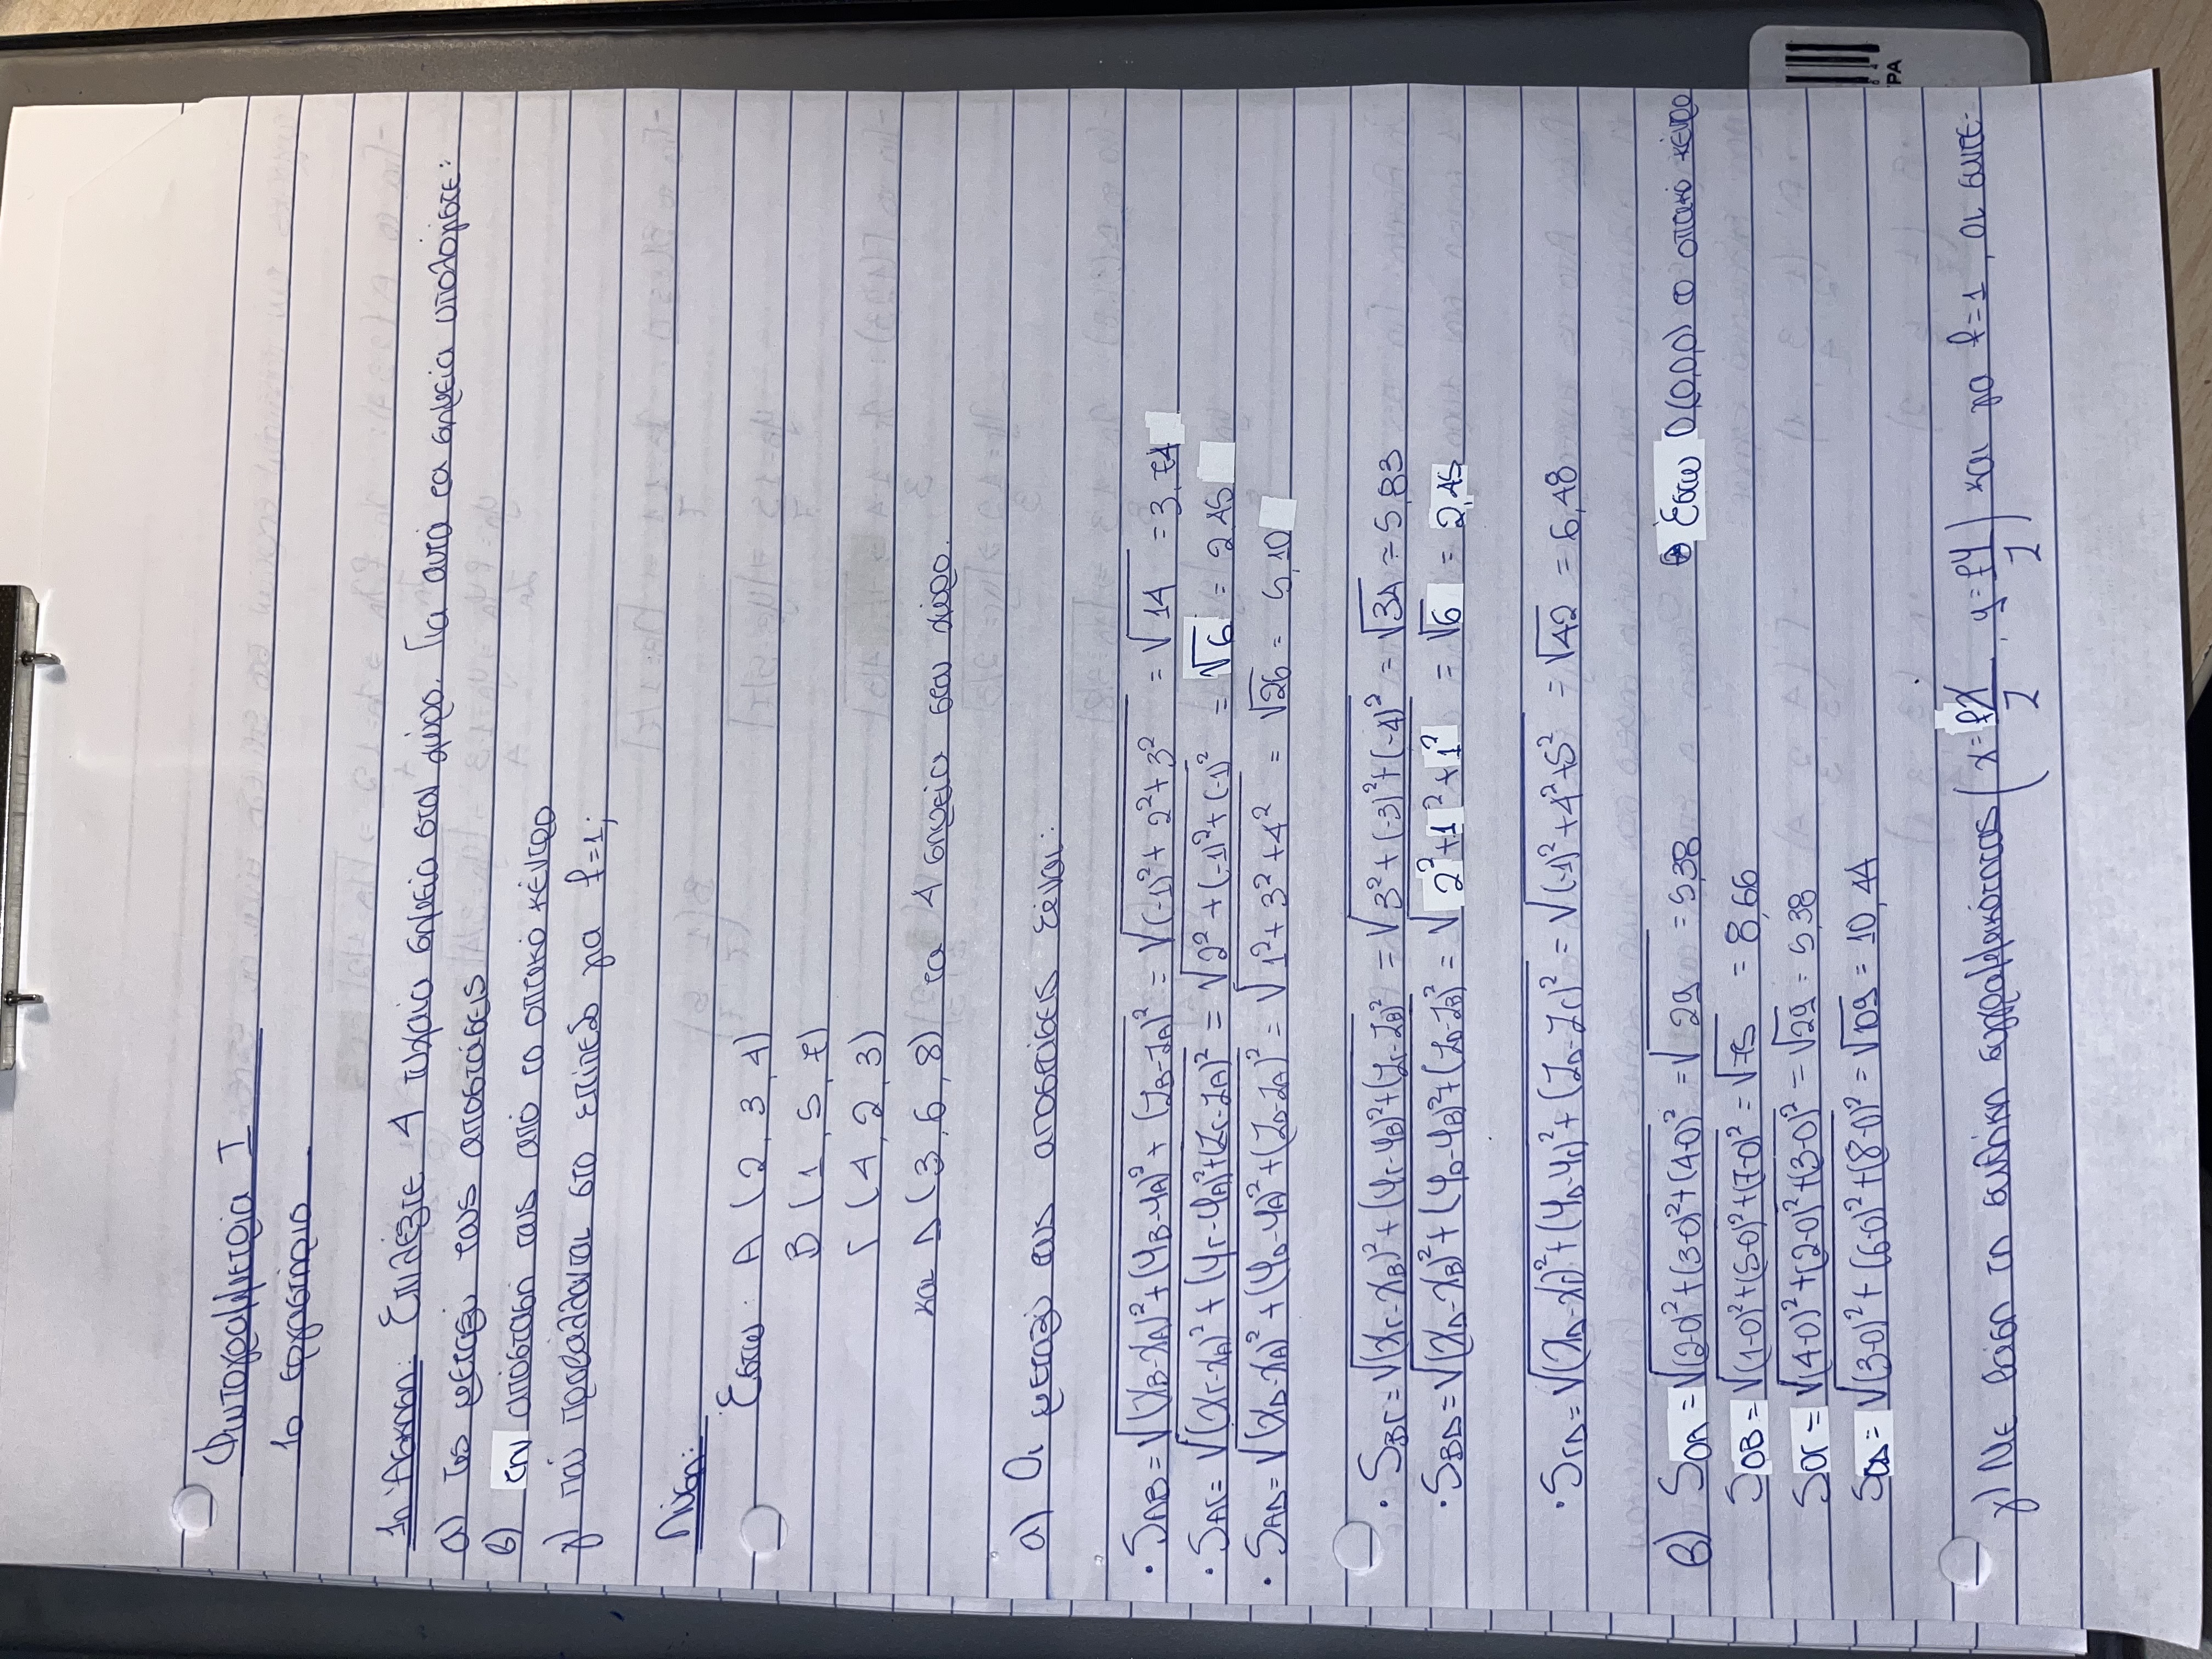 Φωτογραμμετρία I
1ο εργαστήριο
1η Άσκηση: Επιλέξτε 4 τυχαία σημεία στον χώρο. Για αυτά τα σημεία υπολογίστε:
α) τις μεταξύ τους αποστάσεις
β) την απόστασή τους από το οπτικό κέντρο
γ) πού προβάλλονται στο επίπεδο για f=1;
Λύση:
Έστω: A (2, 3, 4)
B (1, 5, 7)
Γ (4, 2, 3)
και Δ (3, 6, 8) τα 4 σημεία στον χώρο.
α) Οι μεταξύ τους αποστάσεις είναι:
• SAB = √(XB-XA)²+(YB-YA)²+(ZB-ZA)² = √(-1)²+2²+3² = √14 = 3,74
• SAΓ = √(XΓ-XA)²+(YΓ-YA)²+(ZΓ-ZA)² = √2²+(-1)²+(-1)² = √6 = 2,45
• SAΔ = √(XΔ-XA)²+(YΔ-YA)²+(ZΔ-ZA)² = √1²+3²+4² = √26 = 5,10
• SBΓ = √(XΓ-XB)²+(YΓ-YB)²+(ZΓ-ZB)² = √3²+(-3)²+(-4)² = √34 = 5,83
• SBΔ = √(XΔ-XB)²+(YΔ-YB)²+(ZΔ-ZB)² = √2²+1²+1² = √6 = 2,45
• SΓΔ = √(XΔ-XΓ)²+(YΔ-YΓ)²+(ZΔ-ZΓ)² = √(-1)²+4²+5² = √42 = 6,48
β) SOA = √(2-0)²+(3-0)²+(4-0)² = √29 = 5,38 Έστω O(0,0,0) το οπτικό κέντρο
SOB = √(1-0)²+(5-0)²+(7-0)² = √75 = 8,66
SOΓ = √(4-0)²+(2-0)²+(3-0)² = √29 = 5,38
SOΔ = √(3-0)²+(6-0)²+(8-0)² = √109 = 10,44
γ) Με βάση τη συνθήκη συγγραμμικότητας (x = fX/Z, y = fY/Z) και για f=1, οι συντε-
PA